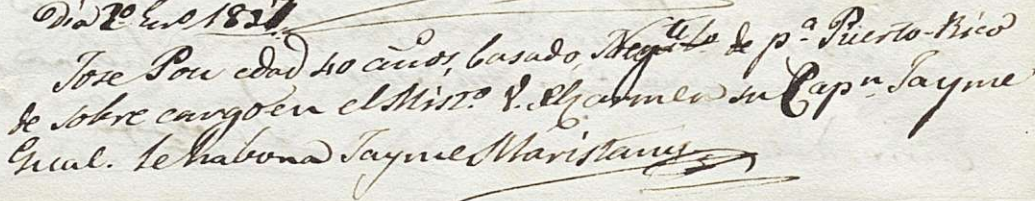 Dia 2º Enº 1821
Jose Pou edad 40 años, Casado, Negte de pª Puerto-Rico
de sobre cargo en el Mistº V. el Carmen su Capn Jayme
le habona Jayme Maristany